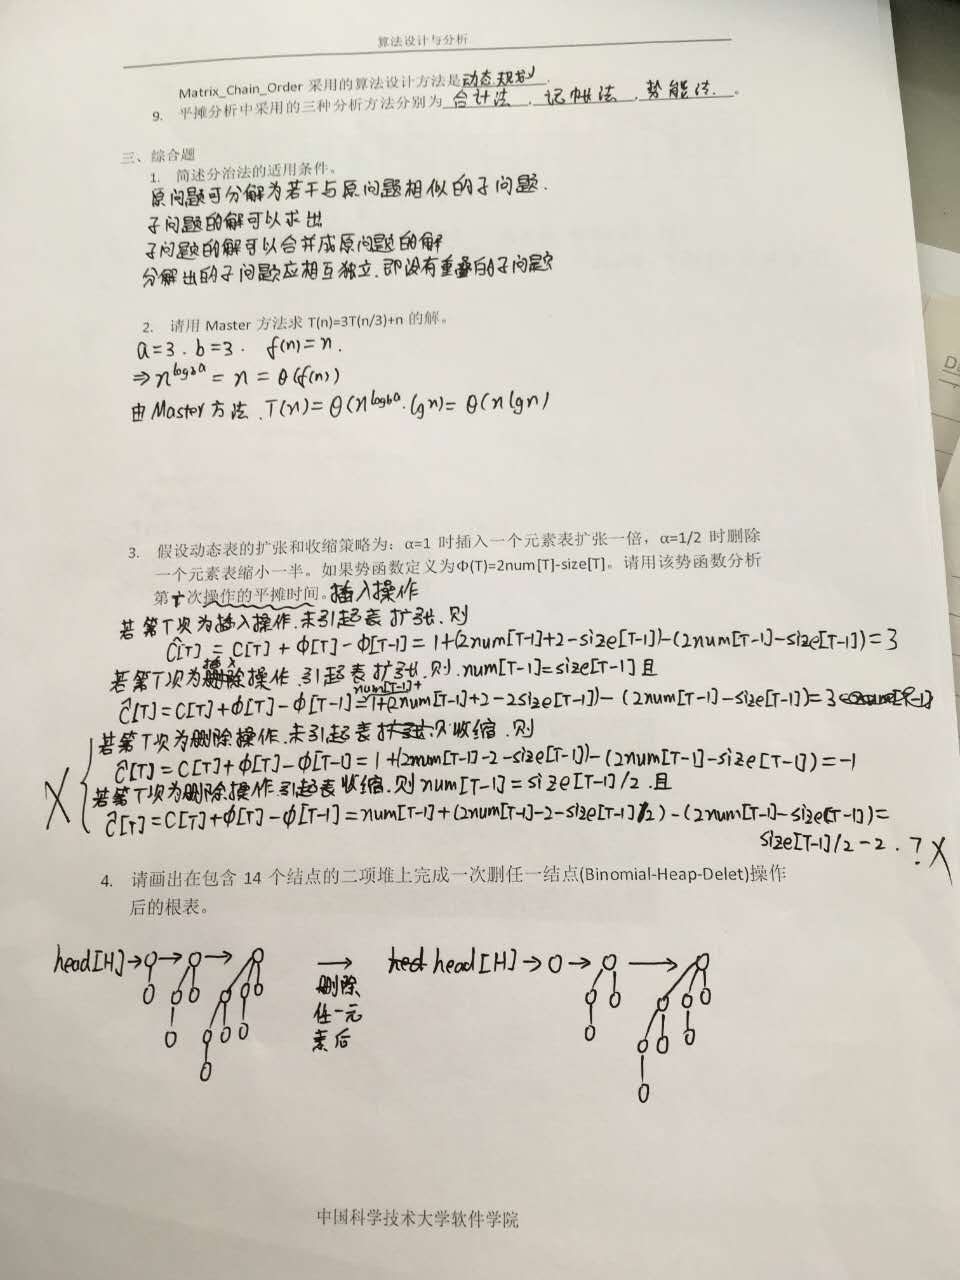 算法设计与分析
Matrix_Chain_Order 采用的算法设计方法是动态规划.
9. 平摊分析中采用的三种分析方法分别为 合计法 , 记帐法 , 势能法. 。
三、综合题
1. 简述分治法的适用条件。
原问题可分解为若干与原问题相似的子问题.
子问题的解可以求出
子问题的解可以合并成原问题的解
分解出的子问题应相互独立.即没有重叠的子问题
2. 请用 Master 方法求 T(n)=3T(n/3)+n 的解。
a=3. b=3. f(n)=n.
⇒n^logba = n = θ(f(n))
由Master方法. T(n)=θ(n^logba·lgn)= θ(nlgn)
3. 假设动态表的扩张和收缩策略为：α=1 时插入一个元素表扩张一倍，α=1/2 时删除
一个元素表缩小一半。如果势函数定义为Φ(T)=2num[T]-size[T]。请用该势函数分析
第T次操作的平摊时间。插入操作
若第T次为插入操作.未引起表扩张.则
ĉ[T] = C[T] + Φ[T] - Φ[T-1] = 1+(2num[T-1]+2-size[T-1])-(2num[T-1]-size[T-1])=3
若第T次为插入操作.引起表扩张.则.num[T-1]=size[T-1]且
ĉ[T]=C[T]+Φ[T]-Φ[T-1]=num[T-1]+1+(2num[T-1]+2-2size[T-1])-(2num[T-1]-size[T-1])=3
若第T次为删除操作.未引起表收缩.则
ĉ[T]=C[T]+Φ[T]-Φ[T-1]=1+(2num[T-1]-2-size[T-1])-(2num[T-1]-size[T-1])=-1
若第T次为删除操作.引起表收缩.则num[T-1]=size[T-1]/2.且
ĉ[T]=C[T]+Φ[T]-Φ[T-1]=num[T-1]+(2num[T-1]-2-size[T-1]/2)-(2num[T-1]-size[T-1])=
size[T-1]/2-2.?X
4. 请画出在包含 14 个结点的二项堆上完成一次删任一结点(Binomial-Heap-Delet)操作
后的根表。
head[H]
删除
任一元
素后
head[H]
中国科学技术大学软件学院